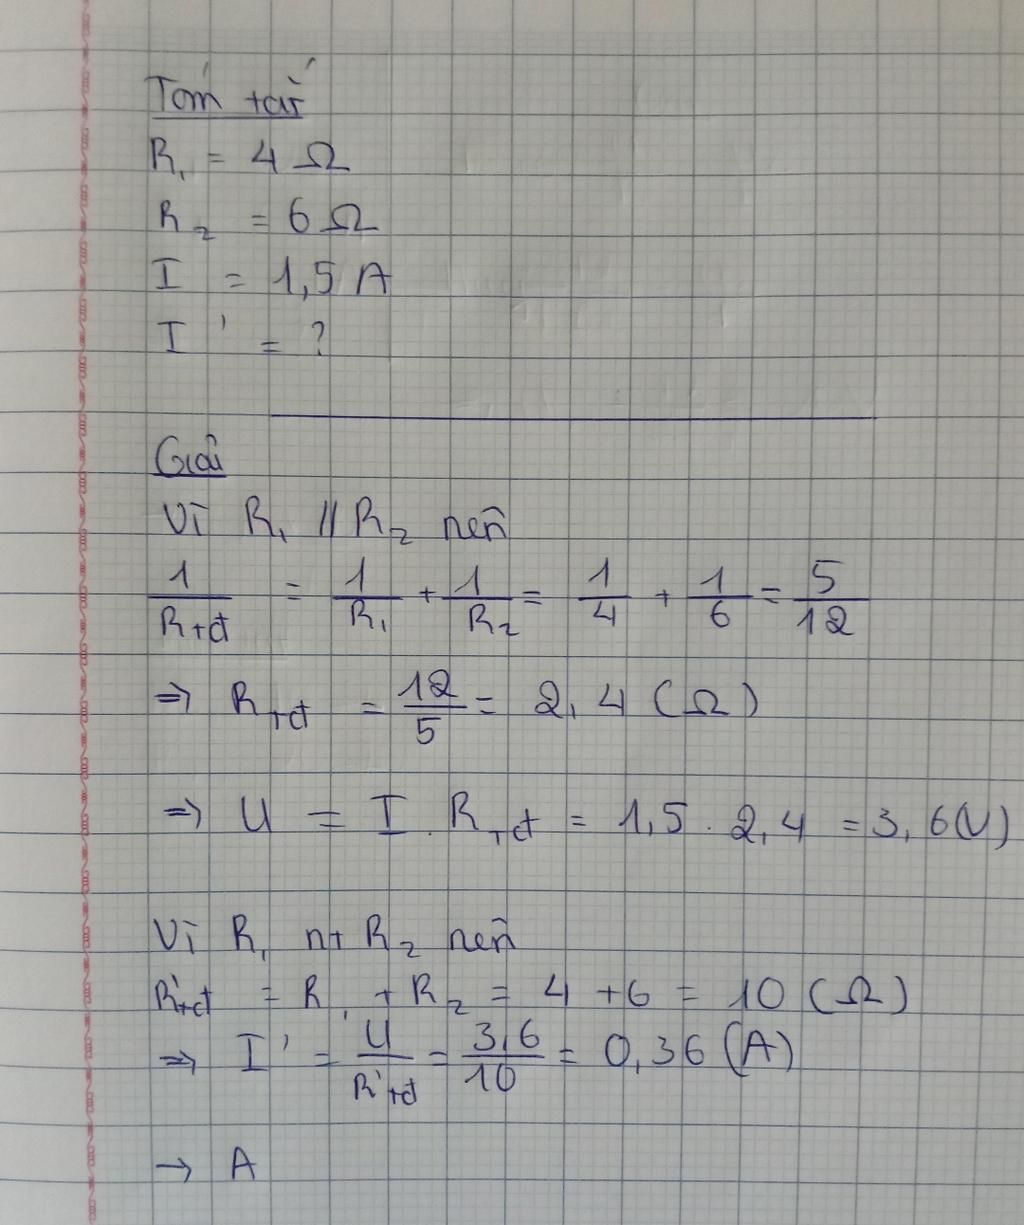 Tóm tắt
R₁ = 4 Ω
R₂ = 6 Ω
I = 1,5 A
I' = ?
Giải
Vì R₁ // R₂ nên
1/Rtđ = 1/R₁ + 1/R₂ = 1/4 + 1/6 = 5/12
=> Rtđ = 12/5 = 2,4 (Ω)
=> U = I . Rtđ = 1,5 . 2,4 = 3,6(V)
Vì R₁ nt R₂ nên
R'tđ = R₁ + R₂ = 4 + 6 = 10 (Ω)
=> I' = U/R'tđ = 3,6/10 = 0,36 (A)
→ A